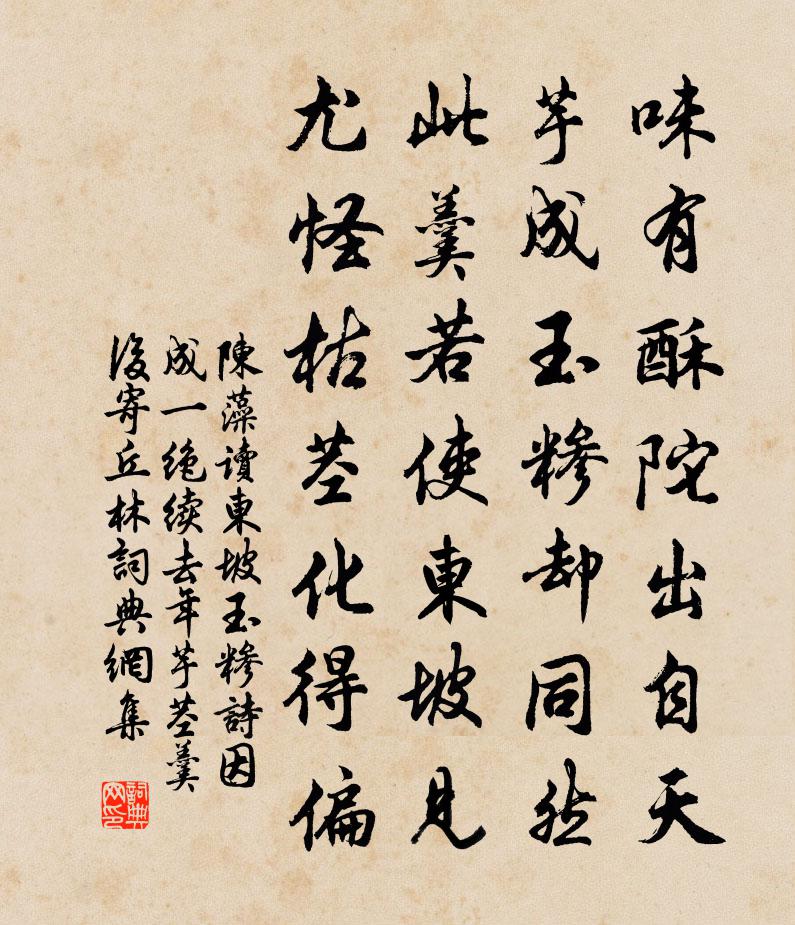 味有酥陀出自天
芋成玉糝却同然
此羹若使東坡見
尤怪枯莖化得偏
陳藻讀東坡玉糝詩因
成一絶續去年芋莖羹
後寄丘林詞典網集
詞典
网印